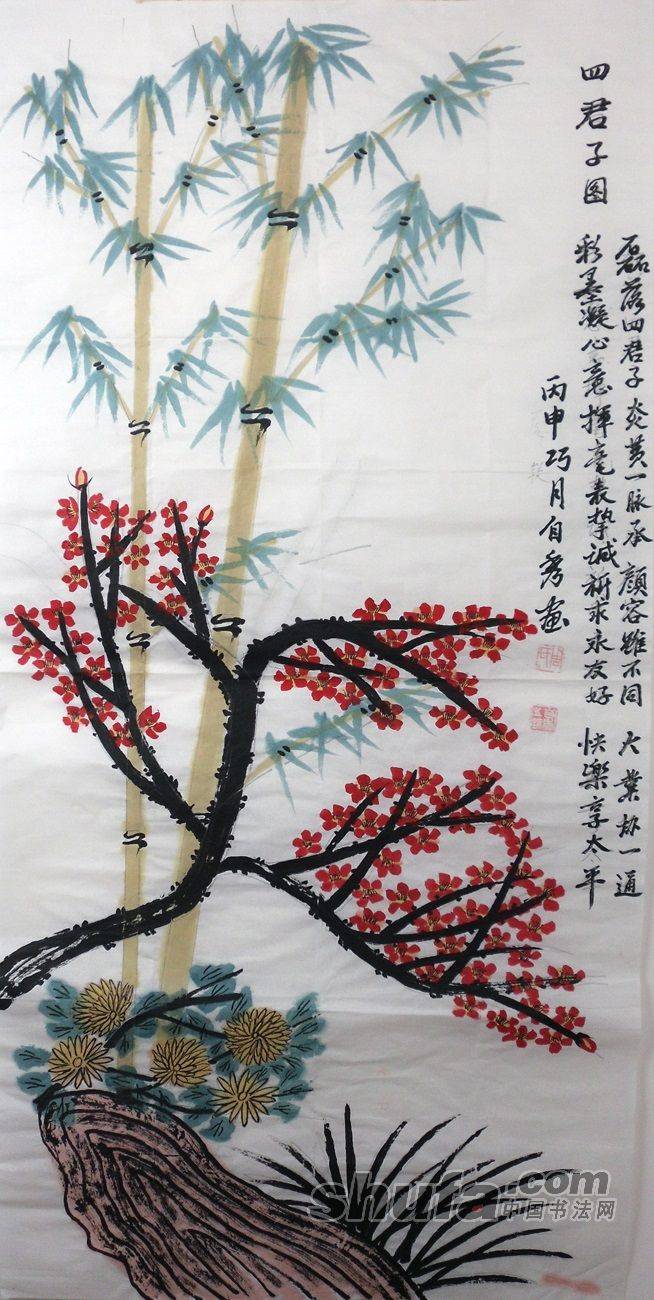 四君子图
磊落四君子 炎黄一脉承 颜容虽不同 大业都一通
彩墨凝心意 挥毫表挚诚 祈求永友好 快樂享太平
丙申巧月自秀画
shufa.com
中国书法网